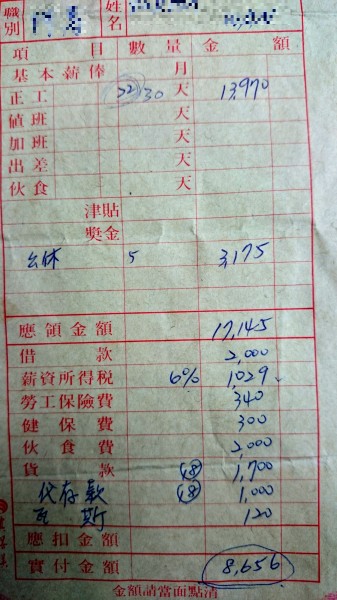 職別
姓名
項目 數量 金額
基本薪俸 月
正工 22 30 天 13,970
值班 天
加班 天
出差 天
伙食 天
津貼
獎金
公休 5 3,175
應領金額 17,145
借款 2,000
薪資所得稅 6% 1,029
勞工保險費 340
健保費 300
伙食費 2,000
貨款 1,700
代存款 1,000
瓦斯 120
應扣金額
實付金額 8,656
金額請當面點清